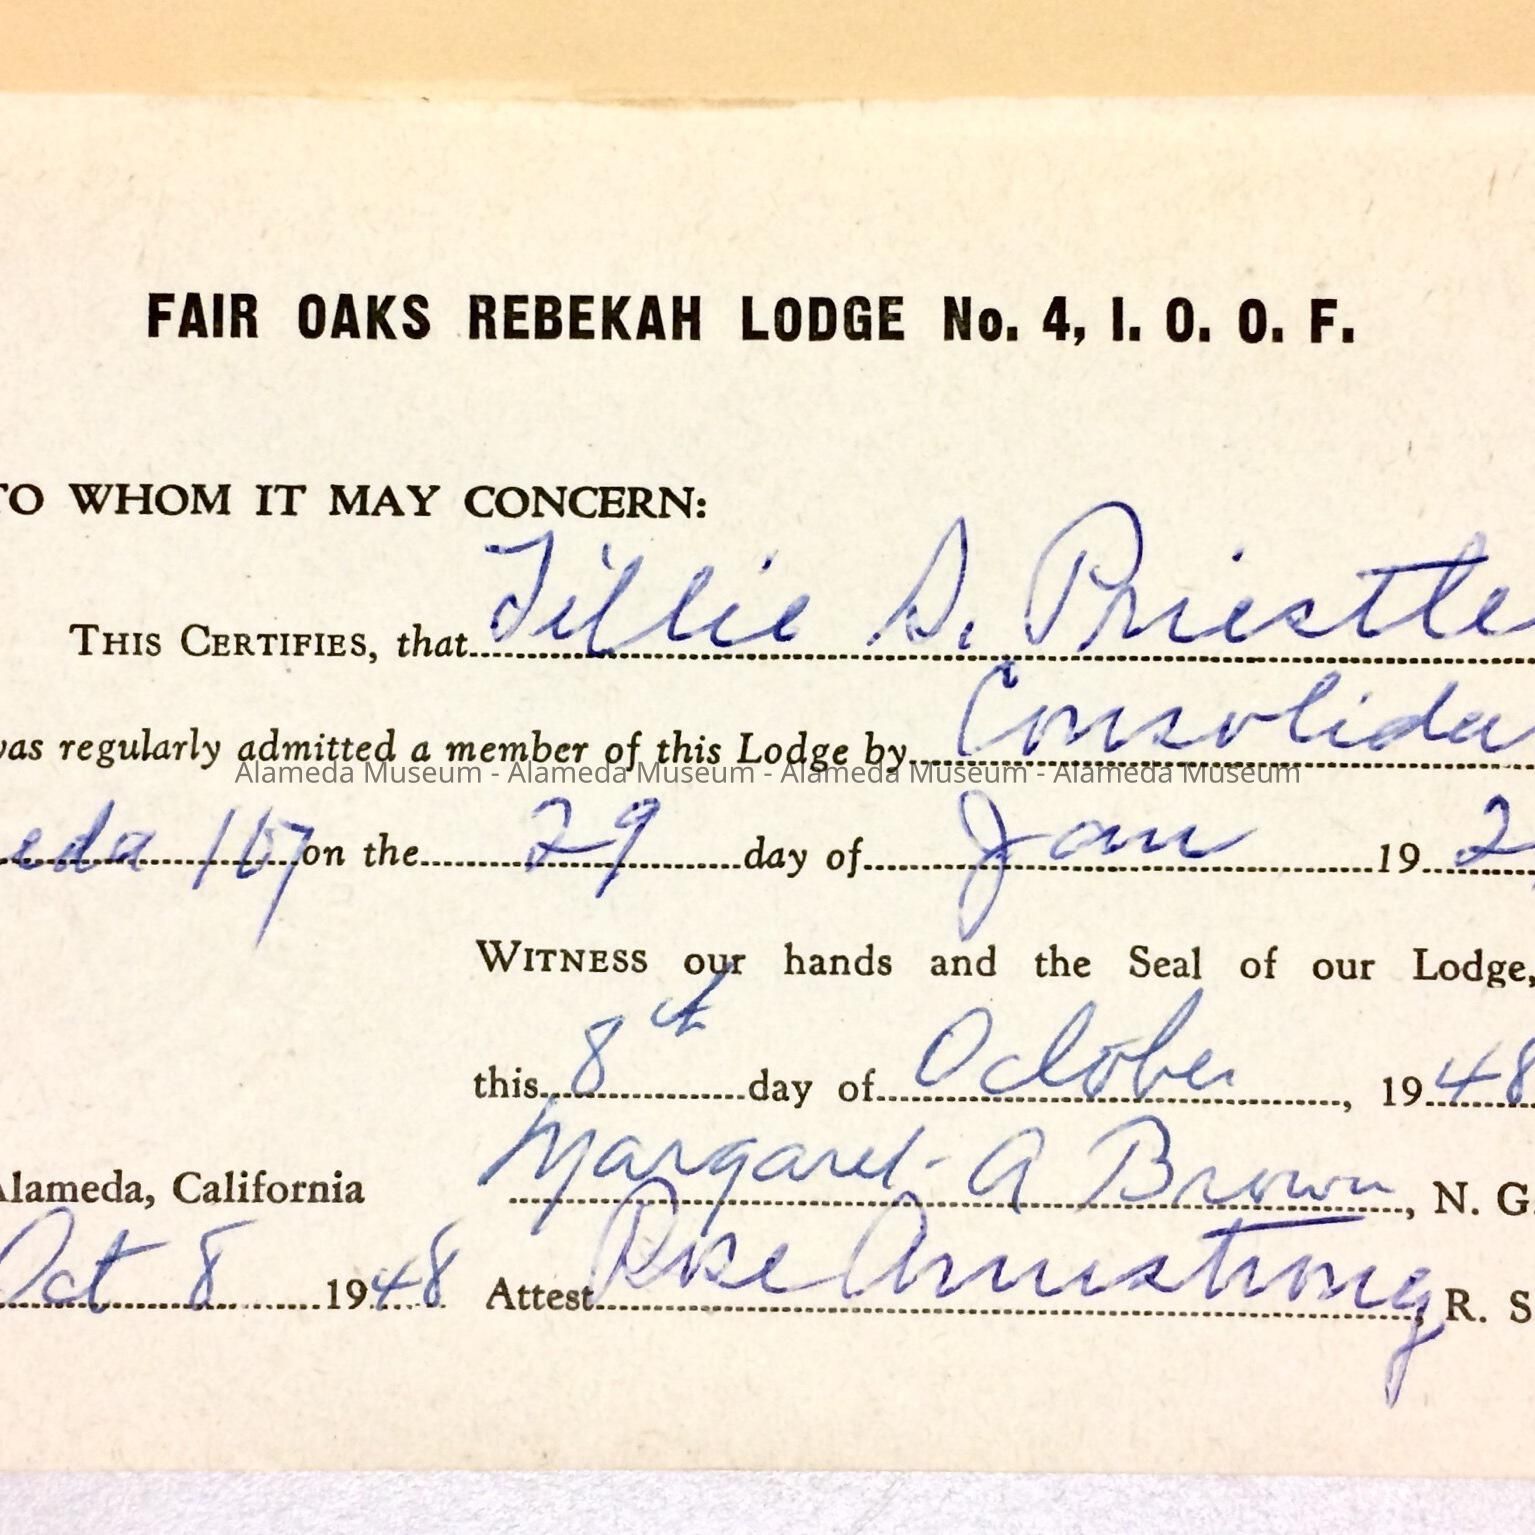 FAIR OAKS REBEKAH LODGE No. 4, I. O. O. F.
TO WHOM IT MAY CONCERN:
THIS CERTIFIES, that Tillie S. Priestle
was regularly admitted a member of this Lodge by Consolida
Alameda Museum - Alameda Museum - Alameda Museum - Alameda Museum
eda 167 on the 29 day of Jan 19 2
WITNESS our hands and the Seal of our Lodge,
this 8th day of October, 1948
Margaret A Brown, N. G.
Alameda, California
Oct 8 1948 Attest Rose Armstrong, R. S